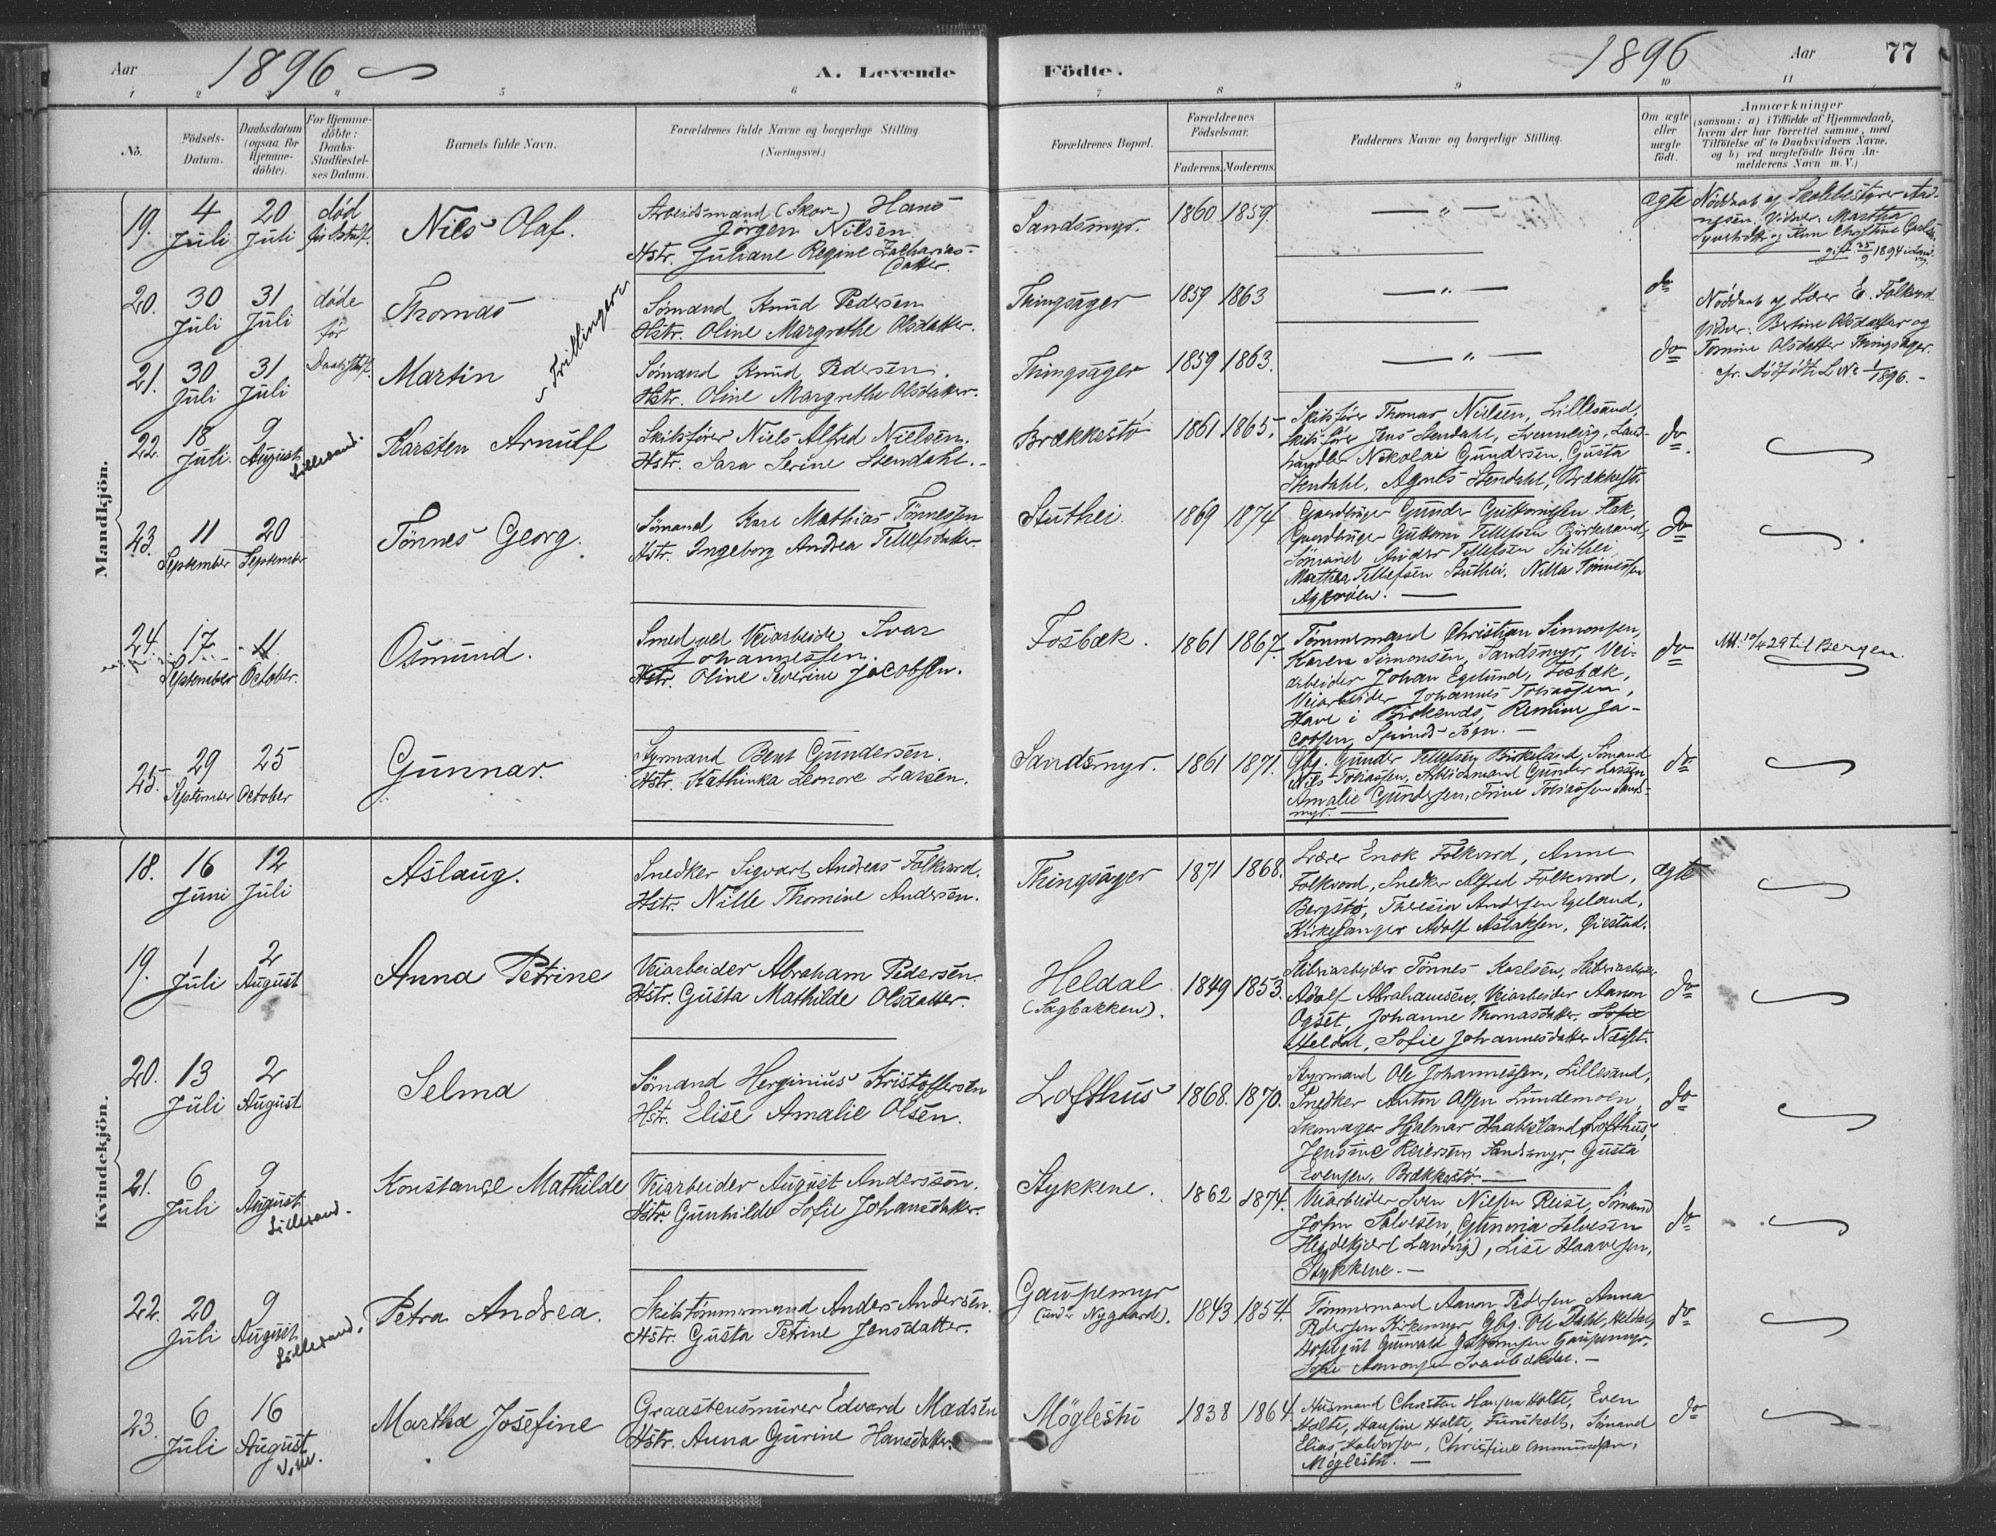 Aar 1896 A. Levende
Fødte. 1896 Aar 77
1 2 3 4 5 6 7 8 9 10 11
No.
Fødsels-
Datum.
Daabsdatum
(ogsaa for
Hjemme-
døbte).
For Hjemme-
døbte:
Daabs-
Stadfæstel-
ses Datum.
Barnets fulde Navn.
Forældrenes fulde Navne og borgerlige Stilling
(Næringsvei.)
Forældrenes Bopæl.
Forældrenes
Fødselsaar.
Faderens. Moderens.
Faddernes Navne og borgerlige Stilling.
Om ægte
eller
uægte
født.
Anmærkninger
(saasom: a) i Tilfælde af Hjemmedaab,
hvem der har forrettet samme, med
Tilføielse af to Daabsvidners Navne.
og b) ved uægtefødte Børn An-
melderens Navn m. V.)
Mandkjøn.
19. 4 Juli 20 Juli død før Nils Olaf.
Arbeidsmand (Skov-) Hans
Jørgen Nilsen.
Hstr. Juliane Regine Zacharias-
datter.
Sandsmyr. 1860 1859. — " — ægte
Nøddaab af Skolebestyrer
Vidner Martha
gift 25/9 1894
20. 30 Juli 31 Juli døde før Thomas
Sømand Knud Pedersen
Hstr. Oline Margrethe Olsdatter.
Thingsager 1859 1863 — " — do
Nøddaab af Lærer E. Folkvord
Vidner. Bertine Olsdatter og
Tomine Olsdatter Thingsager.
cfr. Dødfødte L No 1/1896. -
Trillinger
21. 30 Juli 31 Juli Martin
Sømand Knud Pedersen.
Hstr. Oline Margrethe Olsdatter.
Thingsager 1859 1863. — " — do
22. 18 Juli. 9 August Lillesand. Karsten Arnulf
Skibsfører Niels Alfred Nielsen.
Hstr. Sara Serine Stendahl.
Brækkestø 1861 1865.
Skibsfører Thomas Nielsen, Lillesand,
Skibsfører Jens Stendahl, Svennevig, Land-
handler Nikolai Gundersen, Gusta
Stendahl, Agnes Stendahl, Brækkestø.
do.
23. 11 September 20 September Tønnes Georg.
Sømand Karl Mathias Tønnessen
Hstr. Ingeborg Andrea Tellefsdatter.
Stuthei. 1869 1874.
Gaardbruger Gunder Guttormsen
Gaardbruger Guttorm Tellefsen Birkeland,
Sømand Anders Tellefsen Stuthei,
Marthea Tellefsen Stuthei, Nilla Tønnessen
Agerøen. —
do
24. 17 September 11 October. Osmund.
Smed ved Veiarbeide Ivar
Johannessen.
Hstr. Oline Severine Jacobsen.
Fosbæk. 1861 1867.
Tømmermand Christian Simonsen,
Karen Simonsen, Sandsmyr, Vei-
arbeider Johan Egelund, Fosbæk,
Veiarbeider Johannes Tobiassen,
Have i Birkenes, Remine Ja-
cobsen, Spinds Sogn. —
do Att. 10/4 29 til Bergen.
25. 29 September 25 October Gunnar.
Styrmand Bent Gundersen.
Hstr. Kathinka Leonore Larsen.
Sandsmyr. 1861 1871.
Gbg. Gunder Tellefsen Birkeland, Sømand
Nils Tobiassen, Arbeidsmand Gunder Larsen,
Amalie Gundersen, Trine Tobiassen Sands-
myr. —
do
Kvindekjøn.
18. 16 Juni 12 Juli Aslaug.
Snedker Sigvart Andreas Folkvord.
Hstr. Nille Thomine Andersen.
Thingsager 1871 1868.
Lærer Enok Folkvord, Anne
Folkvord, Snedker Alfred Folkvord,
Bergstø, Theresia Andersen Egeland,
Kirkesanger Adolf Aslaksen, Eiestad.
ægte
19. 1 Juli 2 August Anna Petrine
Veiarbeider Abraham Pedersen.
Hstr. Gusta Mathilde Olsdatter.
Heldal (Sagbakken). 1849 1853.
Sliberiarbeider Tønnes Karlsen, Sliberiarbeider
Adolf Abrahamsen, Veiarbeider Aanon
Ogset, Johanne Thomasdatter. Sofie
Heldal, Sofie Johannesdatter Næset.
do
20. 13 Juli 2 August Selma
Sømand Herginius Kristoffersen
Hstr. Elise Amalie Olsen.
Lofthus 1868. 1870.
Styrmand Ole Johannessen, Lillesand,
Snedker Anton Olsen Lundemoen,
Skomager Hjalmar Haabesland Lofthus,
Jensine Reiersen Sandsmyr, Gusta
Evensen, Brækkestø. —
do
21. 6 Juli 9 August Lillesand. Konstance Mathilde
Veiarbeider August Andersson.
Hstr. Gunhilde Sofie Johansdatter.
Stykkene. 1862 1874.
Veiarbeider Sven Nilsen Reise, Sømand
John Salvesen, Gunoria Salvesen
Heydekjær (Landvig), Lise Haavesen,
Stykkene. —
do
22. 20 Juli 9 August Lillesand. Petra Andrea.
Skibstømmermand Anders Andersen.
Hstr. Gusta Petrine Jensdatter.
Gaupemyr (under Nygaard). 1843 1854.
Tømmermand Aanon Pedersen, Anna
Pedersen Kirkemyr, Gbg. Ole Dahl, Heldal,
Gunvald Guttormsen Gaupemyr,
Sofie Aanonsen. —
do
23. 6 Juli 16 August V.M. Martha Josefine
Graastensmurer Edvard Madsen
Hstr. Anna Gurine Hansdatter.
Møglestu 1838 1864.
Husmand Christen Hansen Holte, Even
Holte, Hansine Holte, Furuholt, Sømand
Elias Halvorsen, Christine Amundsen,
Møglestu. —
do